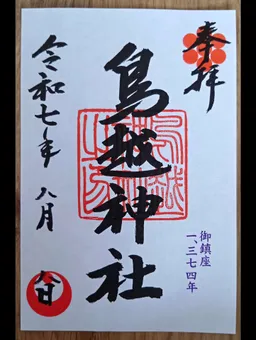 奉拝
鳥越神社
御鎮座
一、三七四年
令和七年 八月 八日